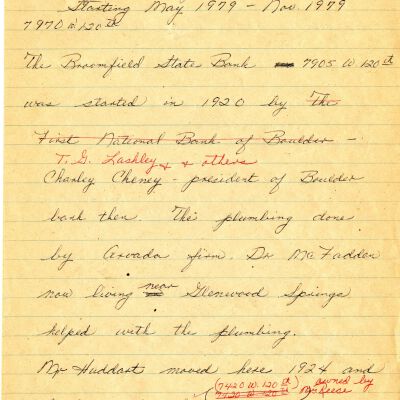 Starting May 1979 - Nov. 1979
7970 W 120th
The Broomfield State Bank 7905 W. 120 st
was started in 1920 by The
First National Bank of Boulder -
T. G. Lashley & & others
Charley Cheney - president of Boulder
bank then. The plumbing done
by Arvada firm. Dr McFadden
now living near Glenwood Springs
helped with the plumbing.
Mr Huddart moved here 1924 and
(7420 W. 120 st) owned by
(7420 W. 120 st McReece